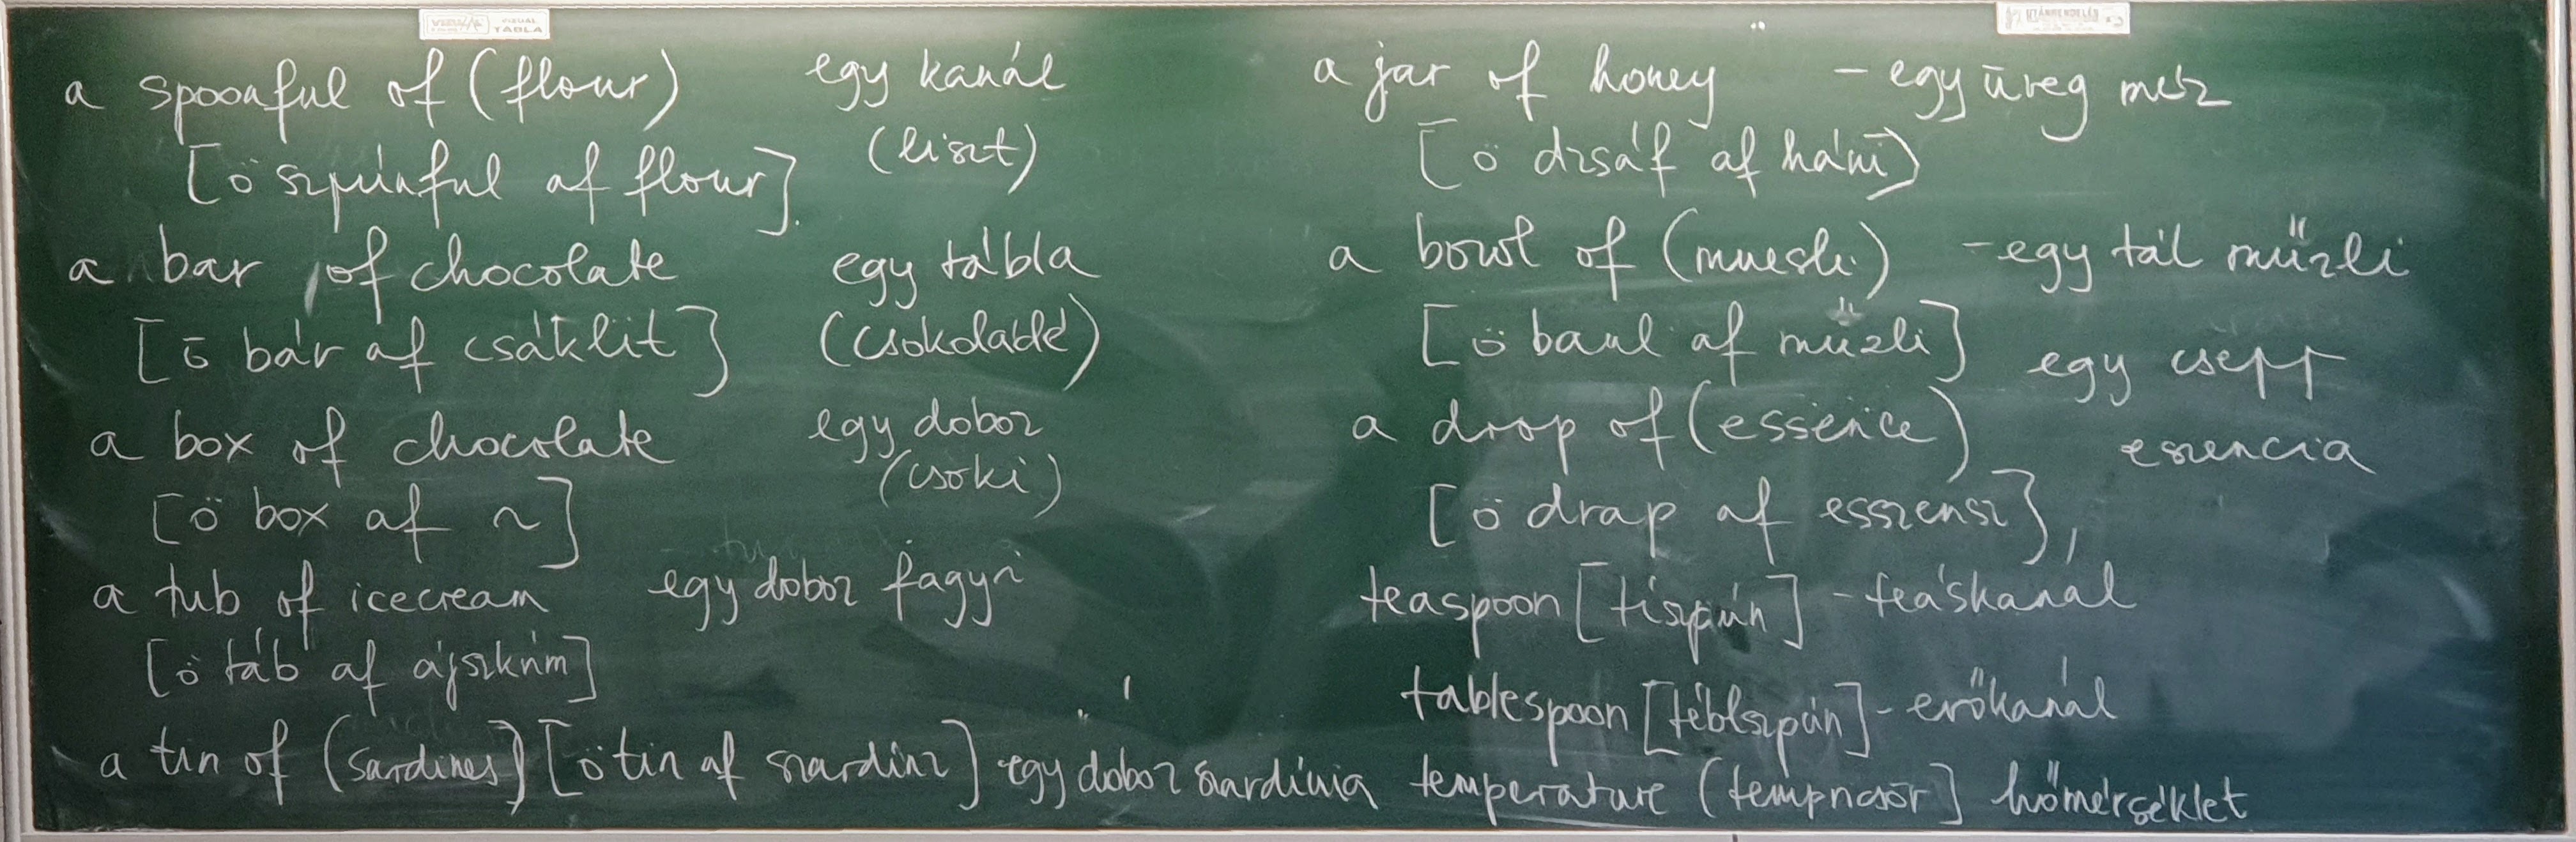 VISUAL TÁBLA
a spoonful of (flour) egy kanál
(liszt)
[ö szpúnful af flour].
a bar of chocolate egy tábla
[ö bár af csáklit] (csokoládé)
a box of chocolate egy doboz
(csoki)
[ö box af ~]
a tub of icecream egy doboz fagyi
[ö táb af ájszkrím]
a tin of (sardines) [ö tin af szardínz] egy doboz szardínia
a jar of honey - egy üveg méz
[ö dzsáf af hání)
a bowl of (muesli) - egy tál műzli
[ö baul af műzli]
egy csepp
a drop of (essence) eszencia
[ö drap af esszensz],
teaspoon [tíszpún] - teáskanál
tablespoon [téblszpún] - evőkanál
temperature (tempricsör] hőmérséklet